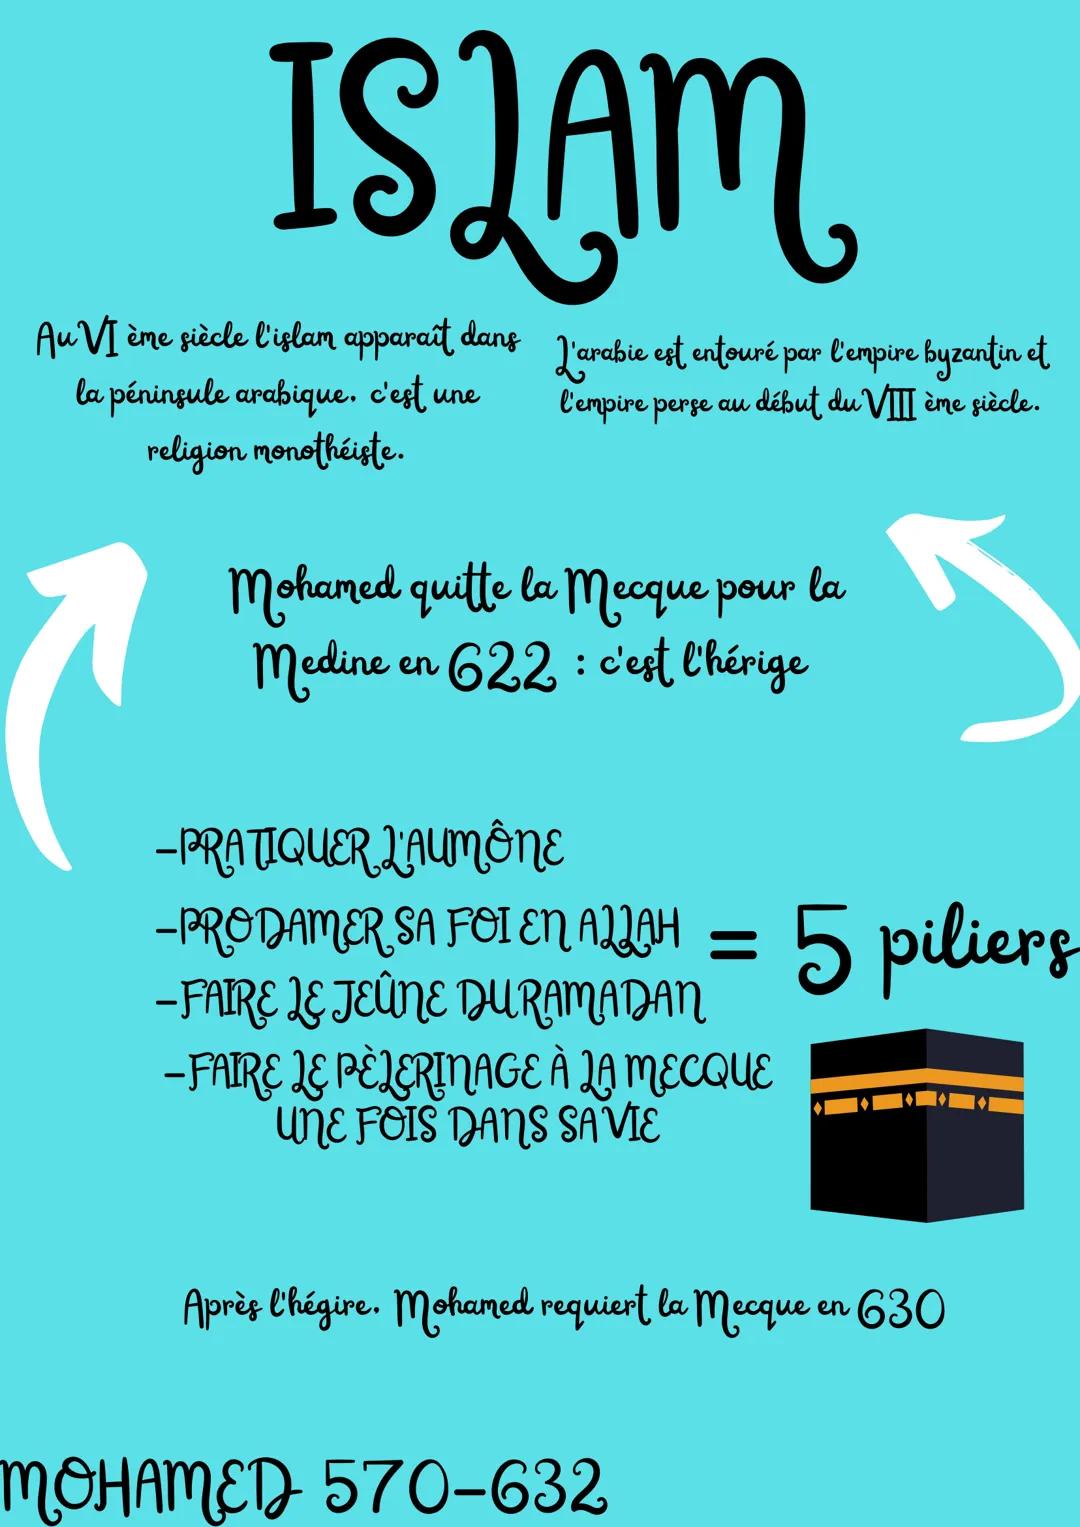 ISLAM
Au VI ème siècle l'islam apparaît dans
la péninsule arabique. c'est une
religion monothéiste.
L'arabie est entouré par l'empire byzantin et
l'empire perse au début du VIII ème siècle.
Mohamed quitte la Mecque pour la
Medine en 622 : c'est l'hérige
-PRATIQUER L'AUMÔNE
-PRODAMER SA FOI EN ALLAH
-FAIRE LE JEÛNE DU RAMADAN
-FAIRE LE PÈLERINAGE À LA MECQUE
UNE FOIS DANS SA VIE
= 5 piliers
Après l'hégire. Mohamed requiert la Mecque en 630
MOHAMED 570-632